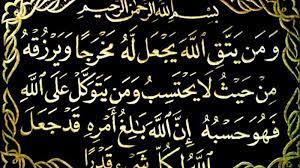 بِسْمِ اللَّهِ الرَّحْمَنِ الرَّحِيمِ
وَمَن يَتَّقِ اللَّهَ يَجْعَل لَّهُ مَخْرَجًا وَيَرْزُقْهُ
مِنْ حَيْثُ لَا يَحْتَسِبُ وَمَن يَتَوَكَّلْ عَلَى اللَّهِ
فَهُوَ حَسْبُهُ إِنَّ اللَّهَ بَالِغُ أَمْرِهِ قَدْ جَعَلَ
اللَّهُ لِكُلِّ شَيْءٍ قَدْرًا